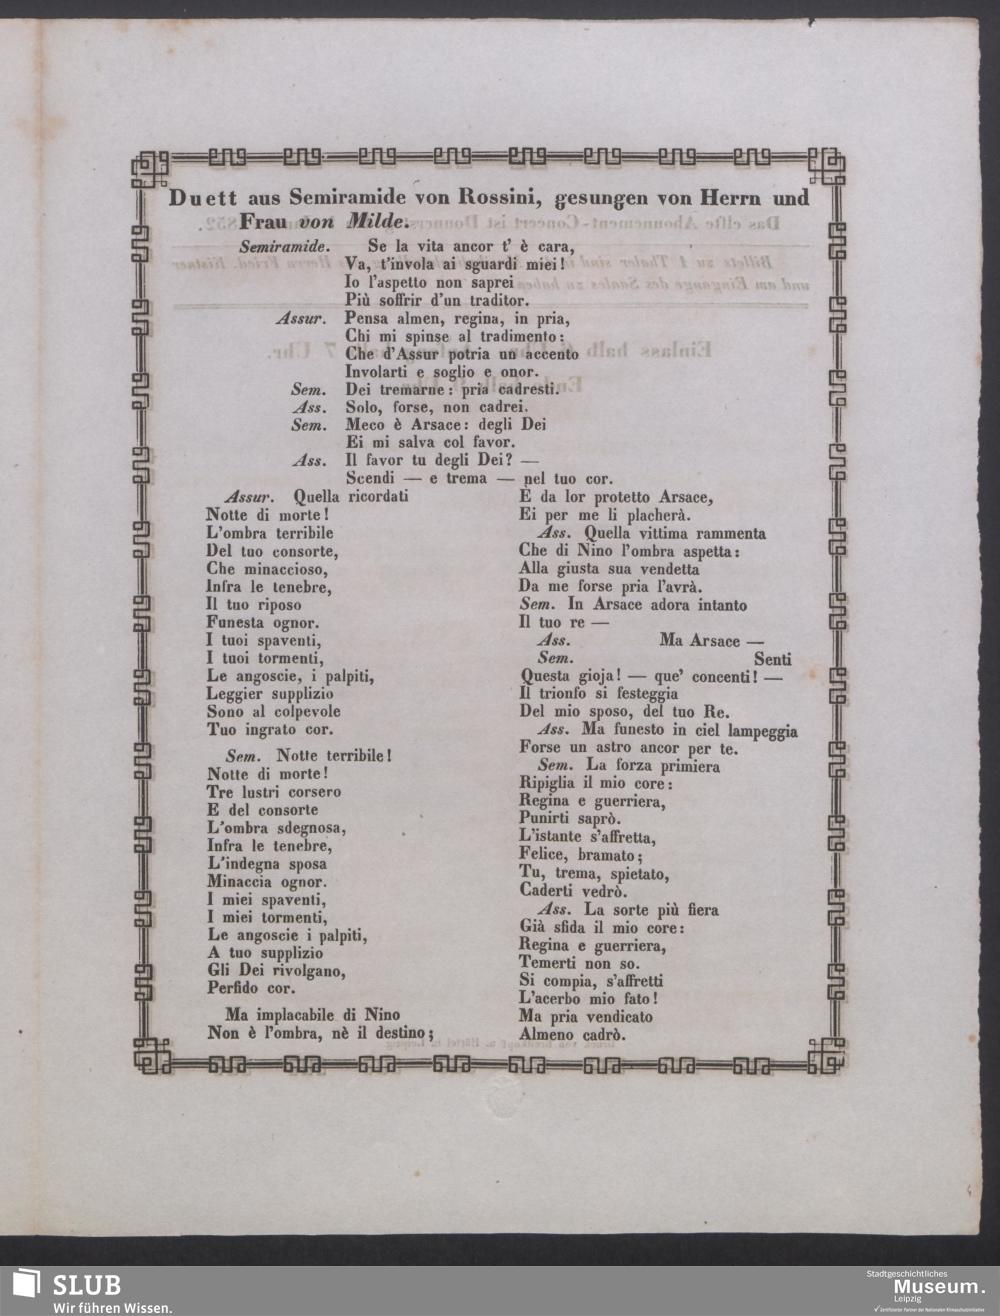 Duett aus Semiramide von Rossini, gesungen von Herrn und
Frau von Milde.
Semiramide. Se la vita ancor t' è cara,
Va, t'invola ai sguardi miei!
Io l'aspetto non saprei
Più soffrir d'un traditor.
Assur. Pensa almen, regina, in pria,
Chi mi spinse al tradimento:
Che d'Assur potria un accento
Involarti e soglio e onor.
Sem. Dei tremarne: pria cadresti.
Ass. Solo, forse, non cadrei.
Sem. Meco è Arsace: degli Dei
Ei mi salva col favor.
Ass. Il favor tu degli Dei? —
Scendi — e trema — nel tuo cor.
Assur. Quella ricordati
Notte di morte!
L'ombra terribile
Del tuo consorte,
Che minaccioso,
Infra le tenebre,
Il tuo riposo
Funesta ognor.
I tuoi spaventi,
I tuoi tormenti,
Le angoscie, i palpiti,
Leggier supplizio
Sono al colpevole
Tuo ingrato cor.
Sem. Notte terribile!
Notte di morte!
Tre lustri corsero
E del consorte
L'ombra sdegnosa,
Infra le tenebre,
L'indegna sposa
Minaccia ognor.
I miei spaventi,
I miei tormenti,
Le angoscie i palpiti,
A tuo supplizio
Gli Dei rivolgano,
Perfido cor.
Ma implacabile di Nino
Non è l'ombra, nè il destino;
E da lor protetto Arsace,
Ei per me li placherà.
Ass. Quella vittima rammenta
Che di Nino l'ombra aspetta:
Alla giusta sua vendetta
Da me forse pria l'avrà.
Sem. In Arsace adora intanto
Il tuo re —
Ass. Ma Arsace —
Sem. Senti
Questa gioja! — que' concenti! —
Il trionfo si festeggia
Del mio sposo, del tuo Re.
Ass. Ma funesto in ciel lampeggia
Forse un astro ancor per te.
Sem. La forza primiera
Ripiglia il mio core:
Regina e guerriera,
Punirti saprò.
L'istante s'affretta,
Felice, bramato;
Tu, trema, spietato,
Caderti vedrò.
Ass. La sorte più fiera
Già sfida il mio core:
Regina e guerriera,
Temerti non so.
Si compia, s'affretti
L'acerbo mio fato!
Ma pria vendicato
Almeno cadrò.
SLUB
Wir führen Wissen.
Stadtgeschichtliches
Museum.
Leipzig
Zertifizierter Partner der Nationalen Klimaschutzinitiative